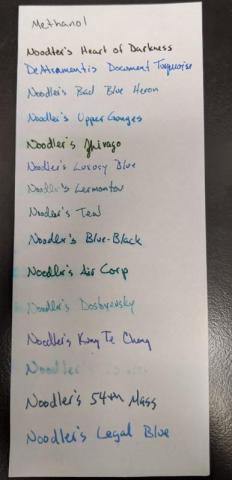 Methanol
Noodler's Heart of Darkness
DeAtramentis Document Turquoise
Noodler's Bad Blue Heron
Noodler's Upper Ganges
Noodler's Zhivago
Noodler's Luxury Blue
Noodler's Lermontov
Noodler's Teal
Noodler's Blue-Black
Noodler's Air Corp
Noodler's Dostoyevsky
Noodler's Kung Te Cheng
Noodler
Noodler's 54th Mass
Noodler's Legal Blue